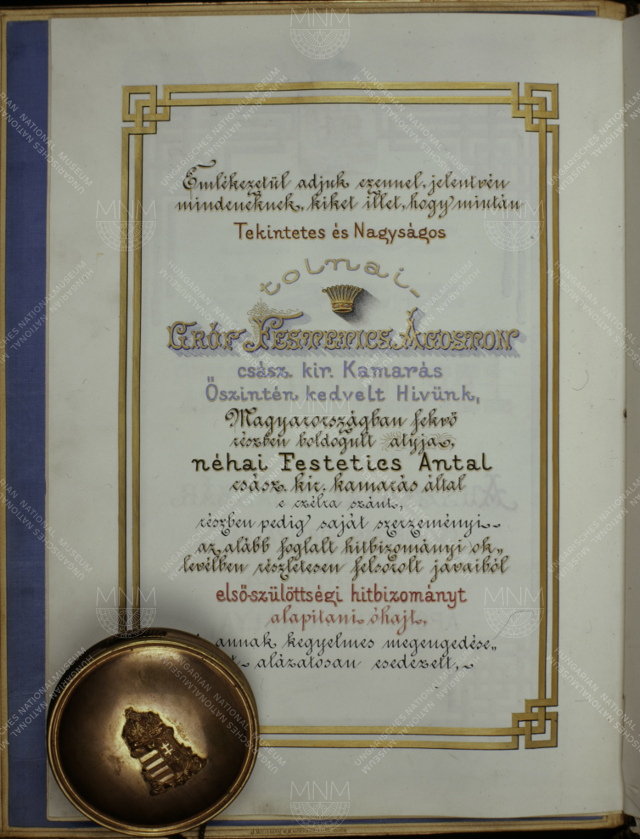 Emlékezetül adjuk ezennel, jelentvén
mindeneknek, kiket illet, hogy mintán
Tekintetes és Nagyságos
tolnai-
GRÓF FESTETICS ÁGOSTON
csász. kir. Kamarás
Őszintén kedvelt Hivünk,
Magyarországban fekvő
részben boldogult atyja,
néhai Festetics Antal
csász. kir. kamarás által
e czélra szánt,
részben pedig saját szerzeményi
az alább foglalt hitbizományi ok„
levélben részletesen felsorolt javaiból
első-szülöttségi hitbizományt
alapitani óhajt,
annak kegyelmes megengedése„
alázatosan esedezett,
MNM
HUNGARIAN NATIONAL MUSEUM
UNGARISCHES NATIONAL MUSEUM